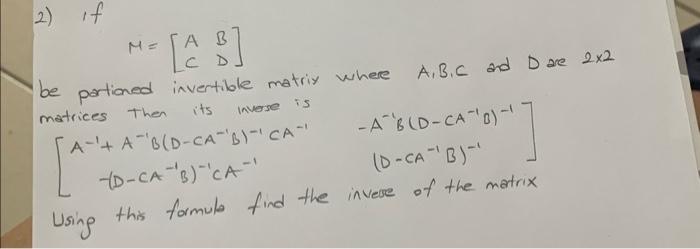 2) if
M = [ A B
C D ]
be partioned invertible matrix where A,B,C and D are 2x2
matrices Then its inverse is
[ A⁻¹+ A⁻¹B(D-CA⁻¹B)⁻¹CA⁻¹ -A⁻¹B(D-CA⁻¹B)⁻¹
-(D-CA⁻¹B)⁻¹CA⁻¹ (D-CA⁻¹B)⁻¹ ]
Using this formula find the inverse of the matrix